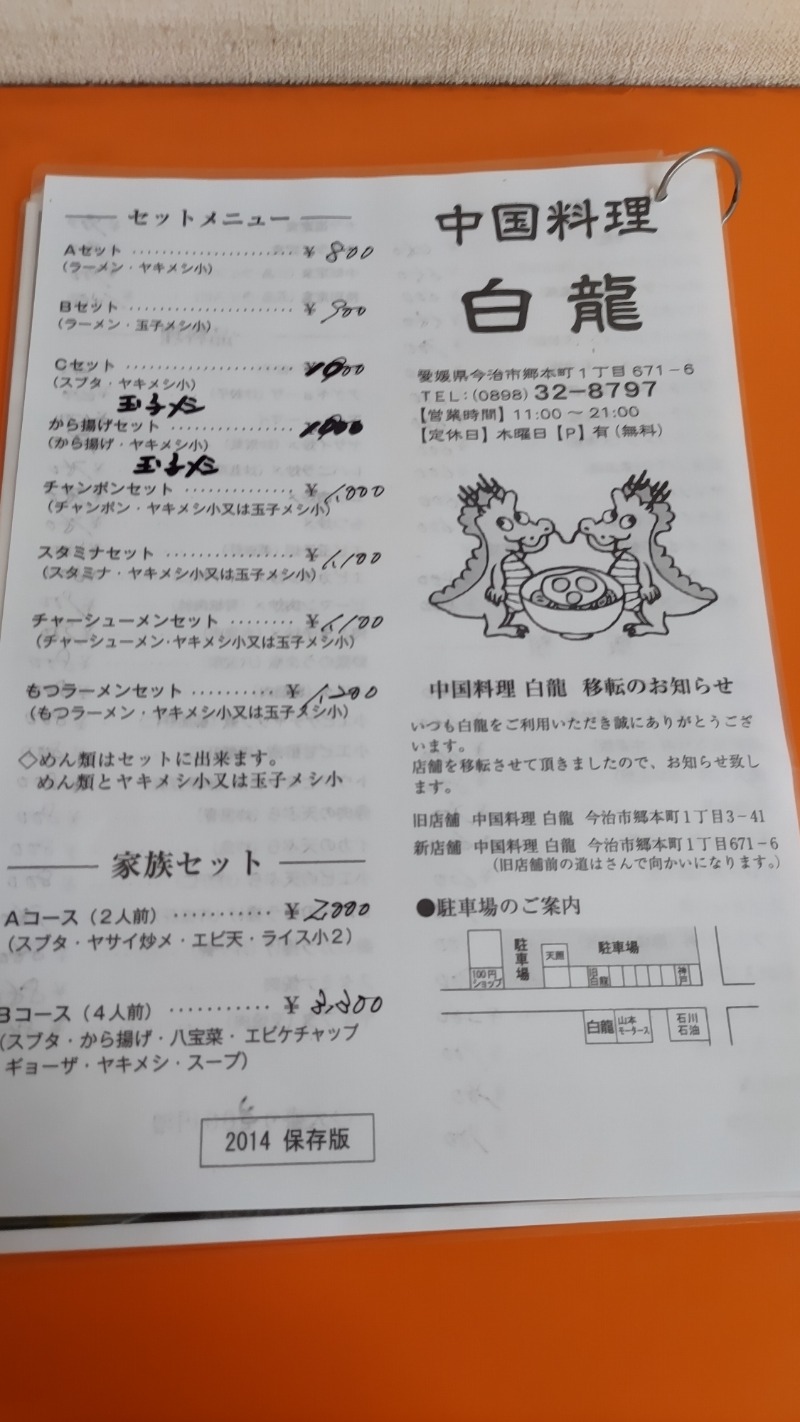 セットメニュー
Aセット ¥ 800
(ラーメン・ヤキメシ小)
Bセット ¥ 900
(ラーメン・玉子メシ小)
Cセット
(スブタ・ヤキメシ小)
玉子メシ
から揚げセット
(から揚げ・ヤキメシ小)
玉子メシ
チャンポンセット ¥ 1,000
(チャンポン・ヤキメシ小又は玉子メシ小)
スタミナセット ¥ 1,100
(スタミナ・ヤキメシ小又は玉子メシ小)
チャーシューメンセット ¥ 1,100
(チャーシューメン・ヤキメシ小又は玉子メシ小)
もつラーメンセット ¥ 1,200
(もつラーメン・ヤキメシ小又は玉子メシ小)
◇めん類はセットに出来ます。
めん類とヤキメシ小又は玉子メシ小
家族セット
Aコース(2人前) ¥ 2,000
(スブタ・ヤサイ炒メ・エビ天・ライス小2)
Bコース(4人前) ¥
(スブタ・から揚げ・八宝菜・エビケチャップ
ギョーザ・ヤキメシ・スープ)
2014 保存版
中国料理
白龍
愛媛県今治市郷本町1丁目671-6
TEL:(0898)32-8797
【営業時間】11:00〜21:00
【定休日】木曜日【P】有(無料)
中国料理 白龍 移転のお知らせ
いつも白龍をご利用いただき誠にありがとうござ
います。
店舗を移転させて頂きましたので、お知らせ致し
ます。
旧店舗 中国料理 白龍 今治市郷本町1丁目3-41
新店舗 中国料理 白龍 今治市郷本町1丁目671-6
(旧店舗前の道はさんで向かいになります。)
●駐車場のご案内
100円
ショップ
駐車場
天照
駐車場
旧
白龍
神戸
白龍
山本
モータース
石川
石油